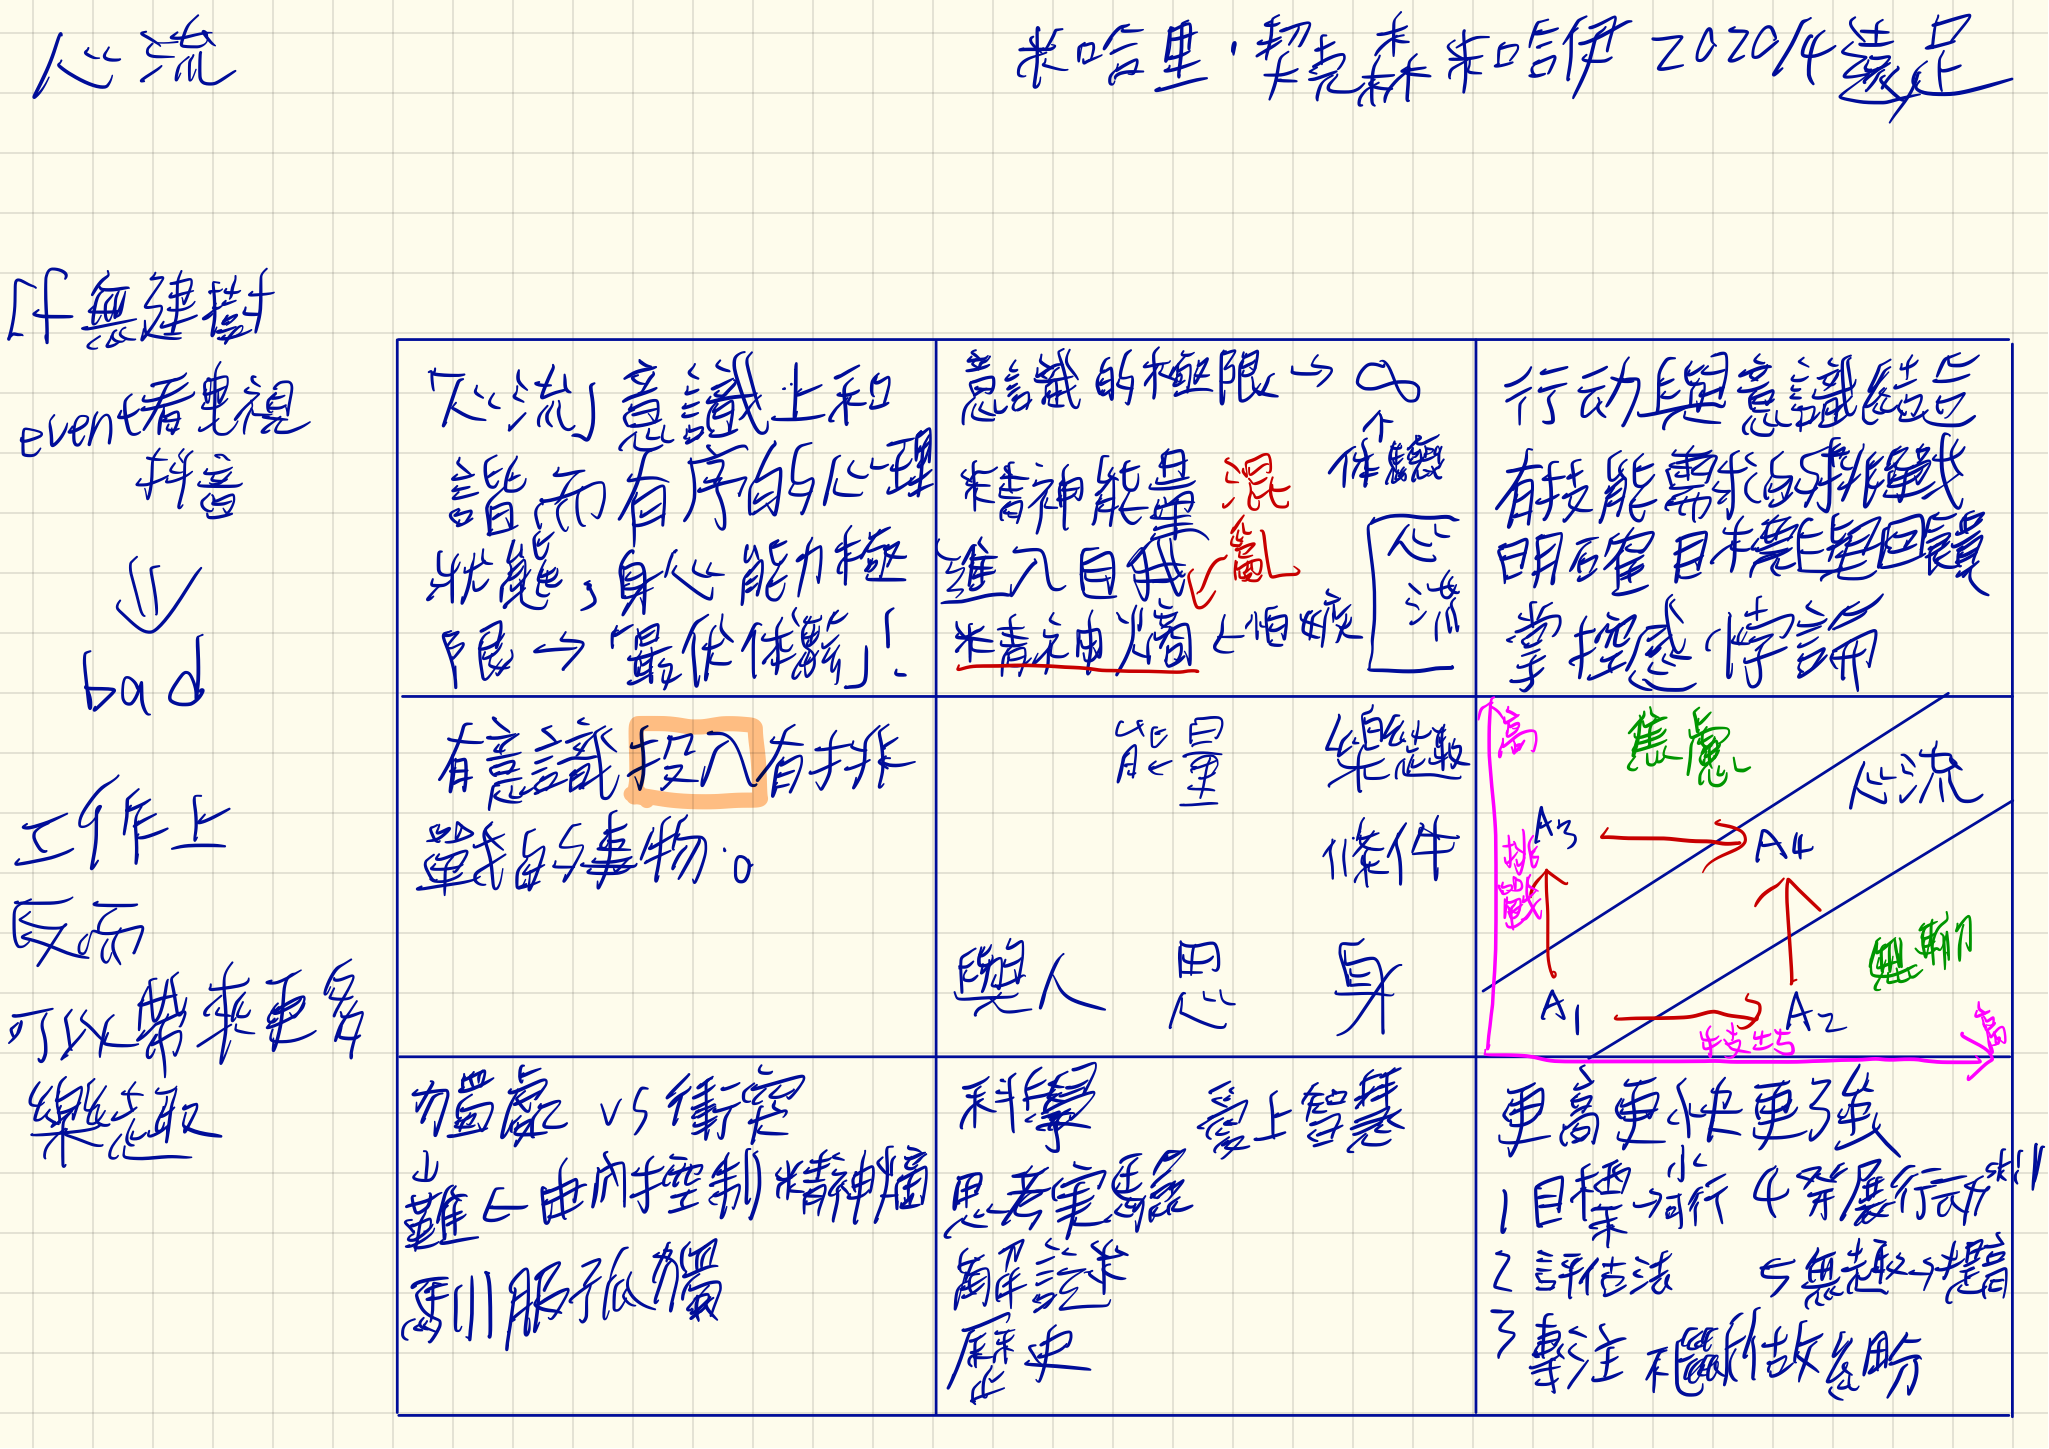 心流
米哈里·契克森米哈伊 2020/4 遠足
無建樹
event看電視
抖音
bad
工作上
反而
可以帶來更多
樂趣
「心流」意識上和
諧而有序的心理
狀態，身心能力極
限→「最优体驗」！
意識的極限→∞
体驗
精神能量
混亂
進入自我
心流
精神熵
怕
行动與意識結合
有技能需求的挑戰
明確目標與回饋
掌控感 悖論
有意識投入有挑
戰的事物。
能量 樂趣
條件
與人 思 身
高 焦慮
心流
A3 A4
挑戰
無聊
A1 A2
技巧 高
獨處 vs 衝突
難←由內控制精神熵
馴服孤獨
科學 愛上智慧
思考实驗
解謎
歷史
更高更快更強
1 目標→小可行 4 發展行动
2 評估法 5 無趣→提高
3 專注 不斷做細分